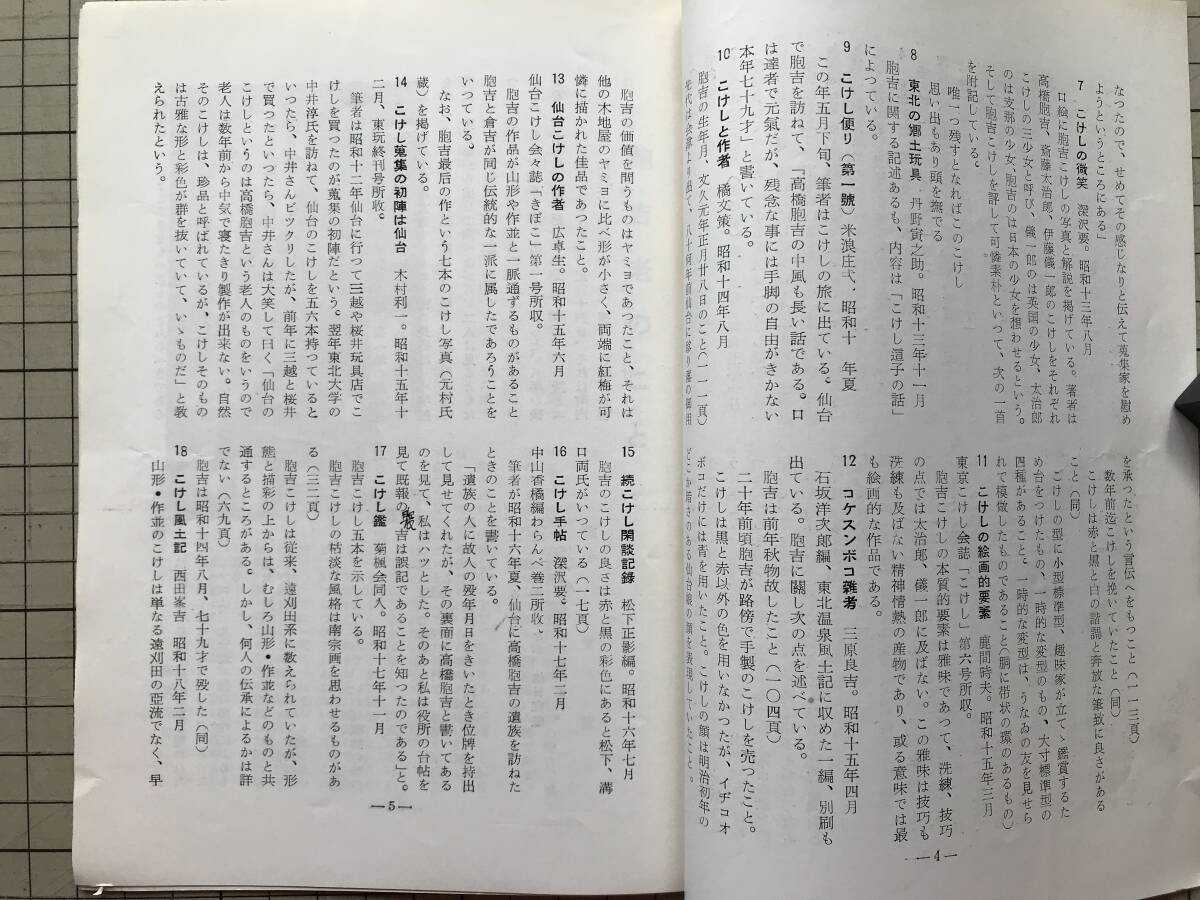 なつたので、せめてその感じなりと伝えて蒐集家を慰め
ようというところにある」
7 こけしの微笑 深沢要。昭和十三年八月
口絵に胞吉こけしの写真と解説を掲げている。著者は
高橋胞吉、斎藤太治郎、伊藤儀一郎のこけしをそれぞれ
こけしの三少女と呼び、儀一郎のは英国の少女、太治郎
のは支那の少女、胞吉のは日本の少女を想わせるという。
そして胞吉こけしを評して可憐素朴といつて、次の一首
を附記している。
唯一つ残すとなればこのこけし
思い出もあり頭を撫でる
8 東北の郷土玩具 丹野寅之助。昭和十三年十一月
胞吉に関する記述あるも、内容は「こけし這子の話」
によつている。
9 こけし便り(第一號)米浪庄弌、昭和十 年夏
この年五月下旬、筆者はこけしの旅に出ている。仙台
で胞吉を訪ねて、「高橋胞吉の中風も長い話である。口
は達者で元氣だが、残念な事には手脚の自由がきかない
本年七十九才」と書いている。
10 こけしと作者 橘文策。昭和十四年八月
胞吉の生年月、文久元年正月廿八日のこと(一一一頁)
を承つたという言伝へをもつこと(一一三頁)
数年前迄こけしを挽いていたこと(同)
こけしは赤と黒と白の諧調と奔放な筆致に良さがある
こと(同)
こけしの型に小型標準型、趣味家が立てゝ鑑賞するた
め台をつけたもの、一時的な変型のもの、大寸標準型の
四種があること。一時的な変型は、うなゐの友を見せら
れて模倣したものであること(胴に帯状の環のあるもの)
11 こけしの絵画的要素 鹿間時夫。昭和十五年三月
東京こけし会誌「こけし」第六号所収。
胞吉こけしの本質的要素は雅味であつて、洗練、技巧
の点では太治郎、儀一郎に及ばない。この雅味は技巧も
洗練も及ばない精神情熱の産物であり、或る意味では最
も絵画的な作品である。
12 コケスンボコ雑考 三原良吉。昭和十五年四月
石坂洋次郎編、東北温泉風土記に収めた一編、別刷も
出ている。胞吉に關し次の点を述べている。
胞吉は前年秋物故したこと(一〇四頁)
二十年前頃胞吉が路傍で手製のこけしを売つたこと。
こけしは黒と赤以外の色を用いなかつたが、イヂコオ
ボコだけには青を用いたこと。こけしの顔は明治初年の
—4—
胞吉の価値を問うものはヤミヨであつたこと、それは
他の木地屋のヤミヨに比べ形が小さく、両端に紅梅が可
憐に描かれた佳品であつたこと。
13 仙台こけしの作者 広卓生。昭和十五年六月
仙台こけし会々誌「きぼこ」第一号所収。
胞吉の作品が山形や作並と一脈通ずるものがあること
胞吉と倉吉が同じ伝統的な一派に属したであろうことを
いつている。
なお、胞吉最后の作という七本のこけし写真(元村氏
蔵)を掲げている。
14 こけし蒐集の初陣は仙台 木村利一。昭和十五年十
二月、東玩終刊号所收。
筆者は昭和十二年仙台に行つて三越や桜井玩具店でこ
けしを買つたのが蒐集の初陣だという。翌年東北大学の
中井淳氏を訪ねて、仙台のこけしを五六本持つていると
いつたら、中井さんビックリしたが、前年に三越と桜井
で買つたといつたら、中井さんは大笑して曰く「仙台の
こけしというのは高橋胞吉という老人のものをいうので
老人は数年前から中気で寝たきり製作が出来ない。自然
そのこけしは、珍品と呼ばれているが、こけしそのもの
は古雅な形と彩色が群を抜いていて、いゝものだ」と教
えられたという。
15 続こけし閑談記錄 松下正影編。昭和十六年七月
胞吉のこけしの良さは赤と黒の彩色にあると松下、溝
口両氏がいつている(一七頁)
16 こけし手帖 深沢要。昭和十七年二月
中山香橘編わらんべ巻二所收、
筆者が昭和十六年夏、仙台に高橋胞吉の遺族を訪ねた
ときのことを書いている。
「遺族の人に故人の歿年月日をきいたとき位牌を持出
して見せてくれたが、その裏面に高橋胞吉と書いてある
のを見て、私はハツとした。そのあと私は役所の台帖を
見て既報の吉は誤記であることを知つたのである」と。
17 こけし鑑 菊楓会同人。昭和十七年十一月
胞吉こけし五本を示している。
胞吉こけしの枯淡な風格は南宗画を思わせるものがあ
る(三二頁)
胞吉こけしは従来、遠刈田系に数えられていたが、形
態と描彩の上からは、むしろ山形・作並などのものと共
通するところがある。しかし、何人の伝承によるかは詳
でない(六九頁)
18 こけし風土記 西田峯吉 昭和十八年二月
胞吉は昭和十四年八月、七十九才で歿した(同)
山形・作並のこけしは単なる遠刈田の亜流でなく、早
—5—